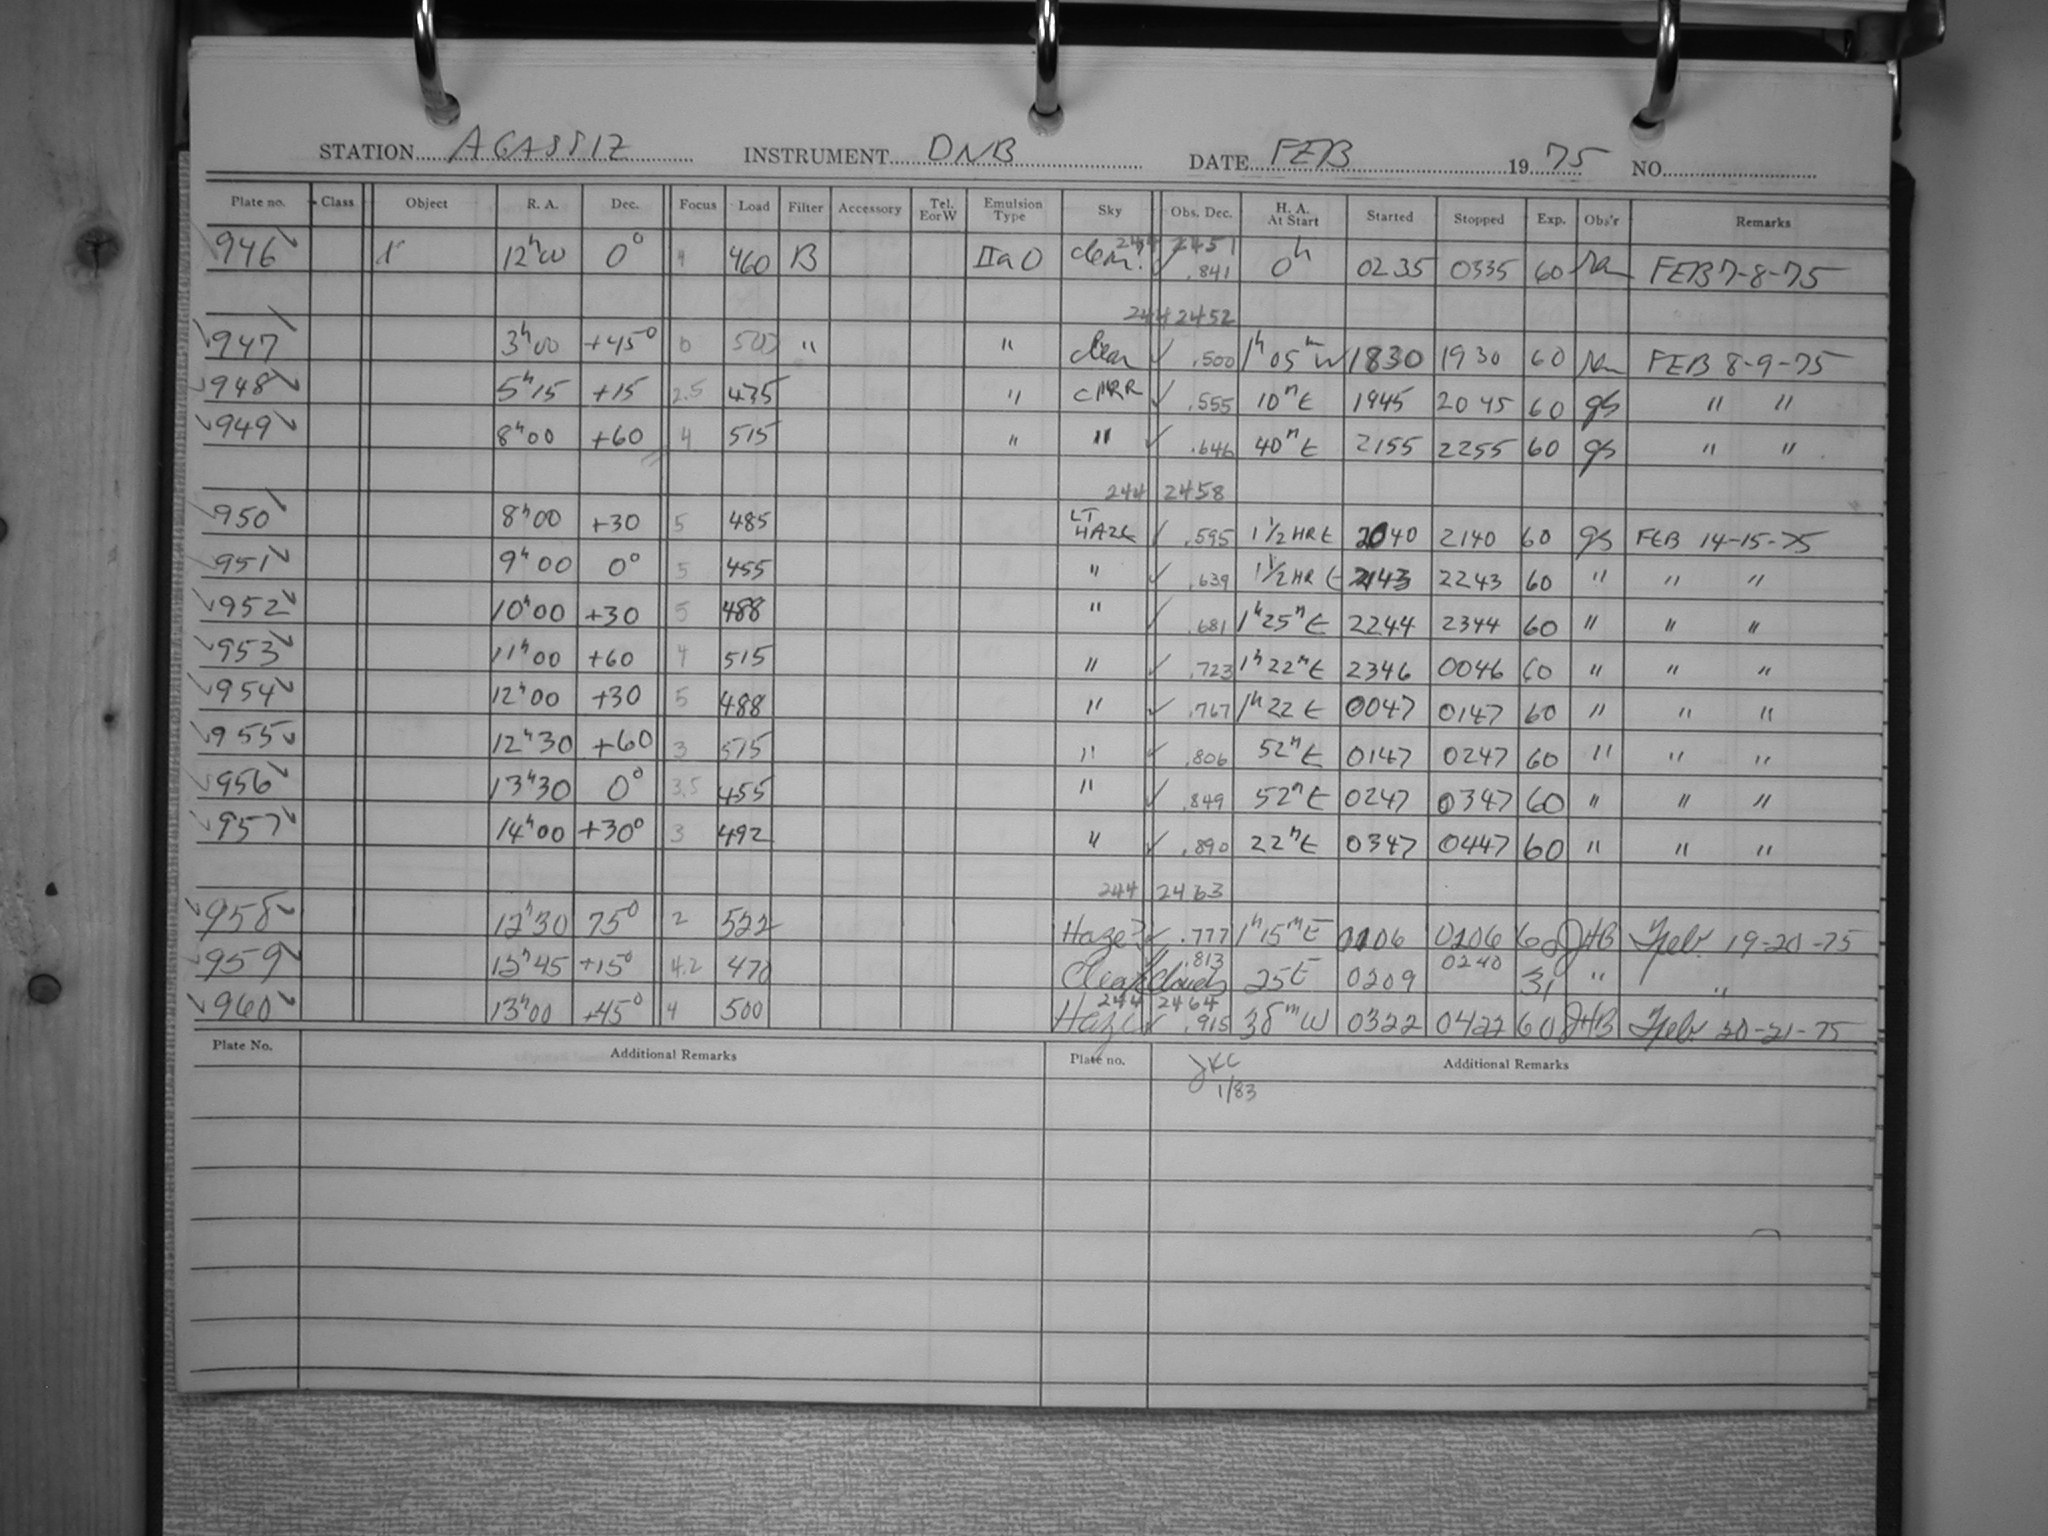 STATION AGASSIZ INSTRUMENT DNB DATE FEB 1975 NO.
Plate no. Class Object R. A. Dec. Focus Load Filter Accessory Tel. E or W Emulsion Type Sky Obs. Dec. H. A. At Start Started Stopped Exp. Obs'r Remarks
244 2451
946 12h00 0° 4 460 B IIaO clear .841 0h 0235 0335 60 FEB 7-8-75
244 2452
947 3h00 +45° 6 500 " " clear .500 1h05m W 1830 1930 60 FEB 8-9-75
948 5h15 +15 2.5 475 " CIRR .555 10m E 1945 2045 60 gs " "
949 8h00 +60 4 515 " " .646 40m E 2155 2255 60 gs " "
244 2458
950 8h00 +30 5 485 LT HAZE .595 1 1/2 HR E 2040 2140 60 gs FEB 14-15-75
951 9h00 0° 5 455 " .639 1 1/2 HR E 2143 2243 60 " " "
952 10h00 +30 5 488 " .681 1h25m E 2244 2344 60 " " "
953 11h00 +60 4 515 " .723 1h22m E 2346 0046 60 " " "
954 12h00 +30 5 488 " .767 1h22 E 0047 0147 60 " " "
955 12h30 +60 3 515 " .806 52m E 0147 0247 60 " " "
956 13h30 0° 3.5 455 " .849 52m E 0247 0347 60 " " "
957 14h00 +30° 3 492 " .890 22m E 0347 0447 60 " " "
244 2463
958 12h30 75° 2 522 Haze? .777 1h15m E 0106 0206 60 JHB Feb. 19-20-75
959 12h45 +15° 4.2 470 Clear/Clouds .813 25E 0209 0240 31 " "
244 2464
960 13h00 +45° 4 500 Haze .915 38m W 0322 0422 60 JHB Feb. 20-21-75
Plate No. Additional Remarks Plate no. Additional Remarks
JKC
1/83